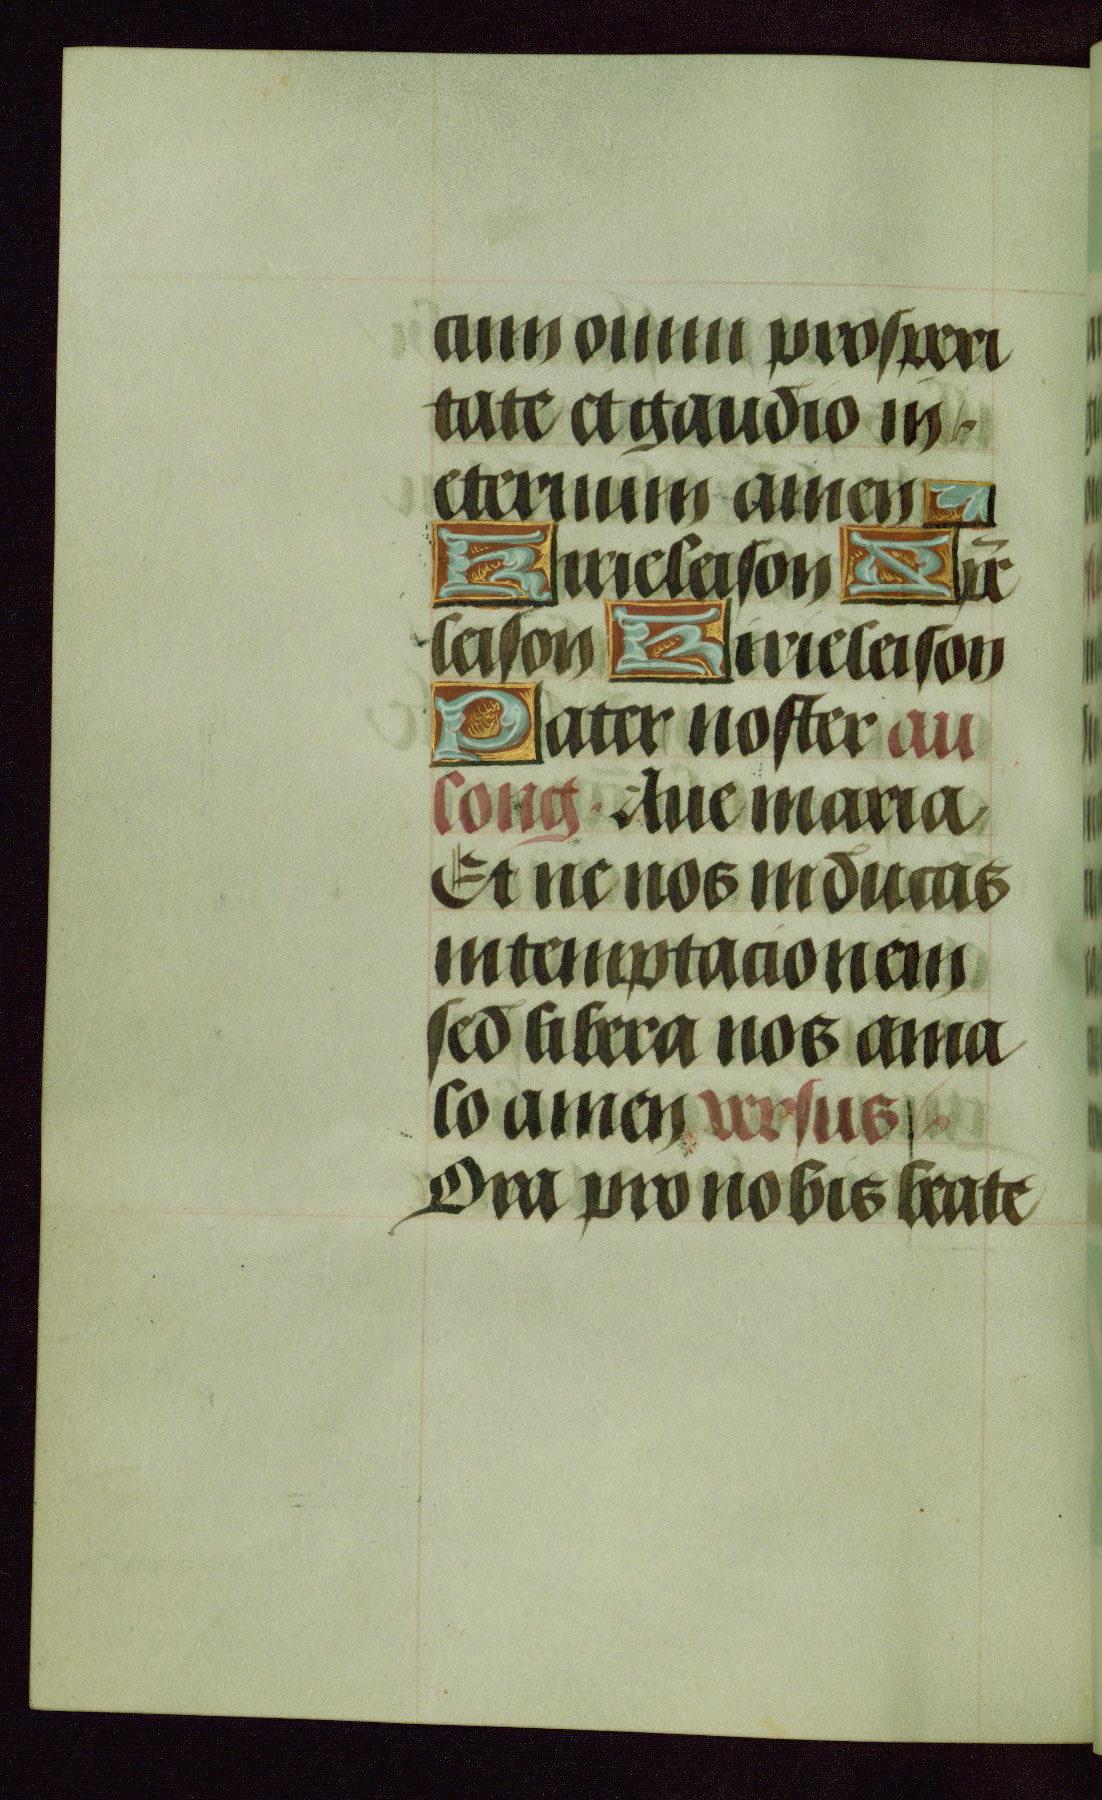 cum omni prosperi
tate et gaudio in
eternum amen
Kirieleison Xp̄e
leison Kirieleison
Pater noster au
long. Aue maria
Et ne nos inducas
in temptacionem
sed libera nos ama
lo amen versus
Ora pro nobis beate